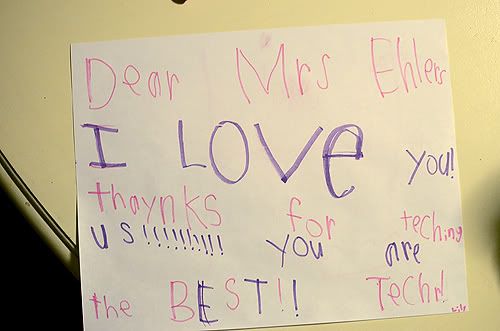 Dear Mrs Ehlers
I LOVe you!
thaynks for teching
us!!!!!!!!!! you are
the BEST!! Techr!